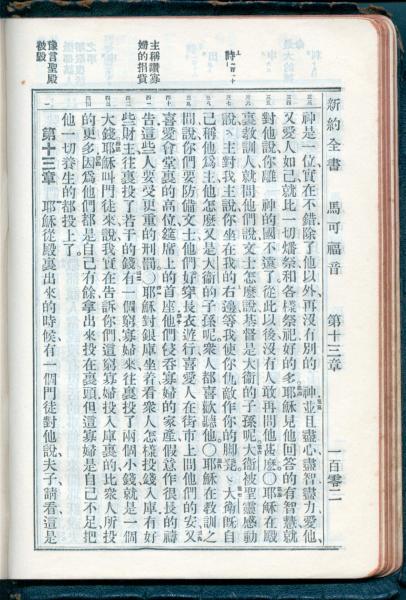 新約全書 馬可福音 第十二章 一百零二
神是一位實在不錯除了他以外再沒有別的 神並且盡心盡智盡力愛他
又愛人如己就比一切燔祭和各樣祭祀好的多耶穌見他回答的有智慧就
對他說你離 神的國不遠了從此以後沒有人敢再問他甚麼〇耶穌在殿
裏教訓人就問他們說文士怎麼說基督是大衛的子孫呢大衛被聖靈感動
說、主對我主說你坐在我的右邊等我使你仇敵作你的脚凳、大衛既自
己稱他爲主他怎麼又是大衛的子孫呢衆人都喜歡聽他〇耶穌在教訓之
間說你們要防備文士他們好穿長衣遊行喜愛人在街市上問他們的安又
喜愛會堂裏的高位筵席上的首座他們侵吞寡婦的家產假意作很長的禱
告這些人要受更重的刑罰〇耶穌對銀庫坐着看衆人怎樣投錢入庫有好
些財主往裏投了若干的錢有一個窮寡婦來往裏投了兩個小錢就是一個
大錢耶穌叫門徒來說我實在告訴你們這窮寡婦投入庫裏的比衆人所投
的更多因爲他們都是自己有餘拿出來投在裏頭但這寡婦是自己不足把
他一切養生的都投上了
第十三章 耶穌從殿裏出來的時候有一個門徒對他說夫子請看這是
詩一百一十
主稱讚寡
婦的捐資
豫言聖殿
被毀